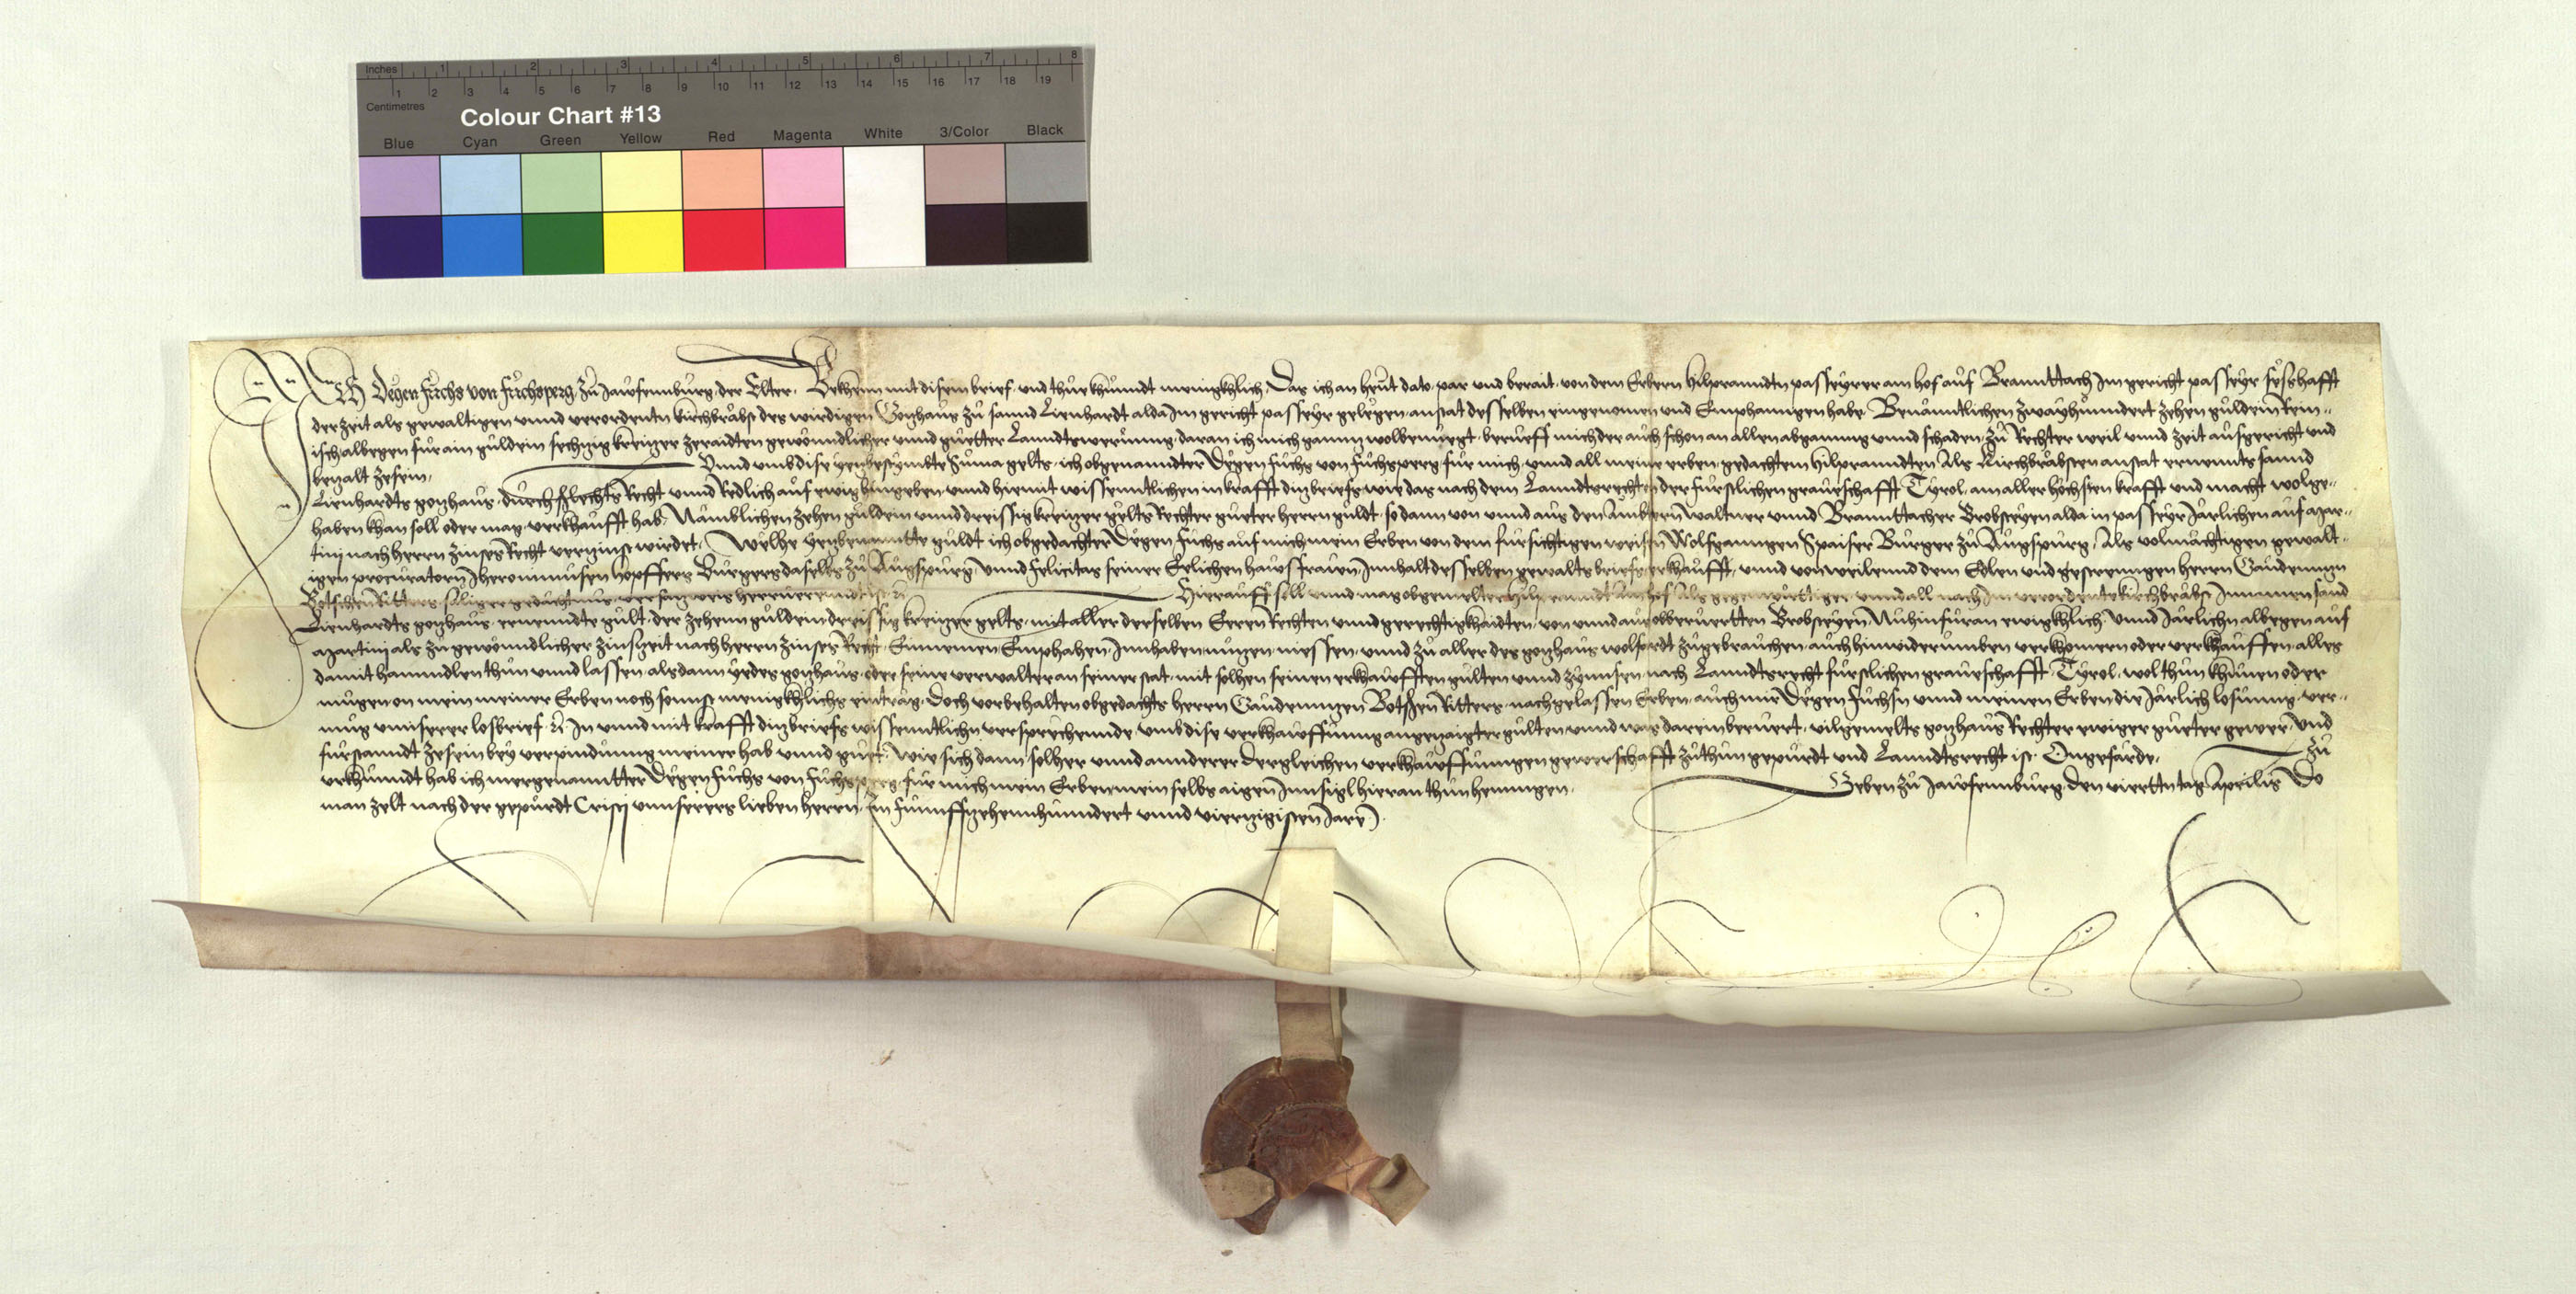 Inches 1 2 3 4 5 6 7 8
1 2 3 4 5 6 7 8 9 10 11 12 13 14 15 16 17 18 19
Centimetres
Colour Chart #13
Blue Cyan Green Yellow Red Magenta White 3/Color Black
ICH Degen Fuchs von Fuchsperg zu Jaufemburg der Elter. Bekhenn mit disem brief und thue khundt menigkhlich, Das ich an heut dato par und berait von dem Erbern Hilpranndtn passeyrer am hof auf Branttach Im gericht passeyr seshafft
der zeit als gewaltigen unnd verordentn kirchbräbst des wirdigen Gotzhaus zu sannd Lienhardt alda Im gericht passeyr gelegen anstat desselben eingenomen und Emphanngen habe. Benanntlichen zwayhunndert zehen guldein Rein-
isch albegen für ain guldein sechzig kreizer zeraidten gewonndlicher unnd guetter Lanndtswerung, daran ich mich gannz wolbenuegt, berueff mich der auch schon an allen abganng unnd schaden, zu Rechter weil unnd zeit ausgericht und
bezalt zesein. Unnd umb dise yezbestymbte Suma gelts, ich obgenanndter Degen Fuchs von Fuchsperg für mich unnd all meine erben, gedachtem Hilpranndten Als Kirchbräbsten anstat ernennts sannd
Lienhardts gotzhaus, durchslechts Recht unnd Redlich auf ewig hingeben unnd hiemit wissenntlichen in krafft ditz briefs wie das nach dem Lanndtsrechten der fürstlichen graueschafft Tyrol, am aller höchsten krafft und macht wolge-
haben khan soll oder mag, verkhaufft hab. Nämblichen zehen guldein unnd dreissig kreizer gelts Rechter gueter herrn guldt, so dann von unnd aus den Ämbtern Waltner unnd Branttacher Brobsteyen alda in passeyr Järlichen auf Mar-
tini nach herrn zinses Recht verzinst wirdet. Welhe yezbenanntte guldt ich obgedachter Degen Fuchs auf mich mein Erben von dem fürsichtigen weisen Wolfganngen Spaiser Burger zu Augspurg, Als volmächtigen gewalt-
igen procuratorn Iheronimusen Höpffers Burgers daselbs zu Augspurg unnd Felicitas seiner Eelichen hausfrauen Innhalt desselben gewaltsbriefs erkhaufft, unnd von weilennd dem Edlen und gestrenngen herrn Gaudennzn
Botschen Ritters säliger gedächtnus, versatzweis herruerennd ist etc. Hierauff soll unnd mag obgemelter Hilpranndt Am hof Als gegenwürttiger unnd all nach Im verordente kirchbräbst Innamen sand
Lienhardts gotzhaus, ernenndte gült, der zehenn guldein dreissig kreizer gelts, mit aller derselben Eeren Rechten unnd gerechtigkhaidten, von unnd aus olberuertten Brobsteyen, Nu hinfüran ewigkhlich unnd Järlichn albegen auf
Martini als zu gewonndlicher zinszeit nach herrn zinses Recht, Einnemen Emphahen Innhaben nutzen niessen, unnd zu aller des gotzhaus wolfardt zugebrauchen, auch hinwiderumben verkhomern oder verkhauffen, alles
damit hanndlen thun unnd lassen, als dann yedes gotzhaus, oder seine verwalter an seiner stat, mit solhen seinen erkhaufften gulten unnd zynnsen, nach Lanndtsrecht fürstlichen graueschafft Tyrol, wol thun khunen oder
mugen, on mein meiner Erben noch sonnst menigkhlichs eintrag. Doch vorbehalten obgedachts herrn Gaudennzen Botschen Ritters, nachgelassen Erben, auch mir Degen Fuchsn unnd meinen Erben die Järlich losunng, ver-
mug unnserer losbrief etc. In unnd mit krafft ditz briefs wissenntlichn versprechennde, umb dise verkhauffunng angezaigter gulten unnd was darein beruert, vilgemelts gotzhaus Rechter ewiger gueter gewer, und
fürstanndt zesein bey verpindunng meiner hab unnd guet, wie sich dann solher unnd annderer dergleichen verkhauffunngen gewerschafft zuthun gepurdt und Lanndtsrecht ist. Ongefärde. Zu
urkhundt hab ich mergenanntter Degen Fuchs von Fuchsperg für mich mein Erben mein selbs aigen Innsigl hieran thun henngen. Geben zu Jaufennburg, den vierttn tag Aprilis Do
man zelt nach der gepurdt Cristi unnserers lieben herrn, Im Funnffzehennhunndert unnd vierzigisten Jare.